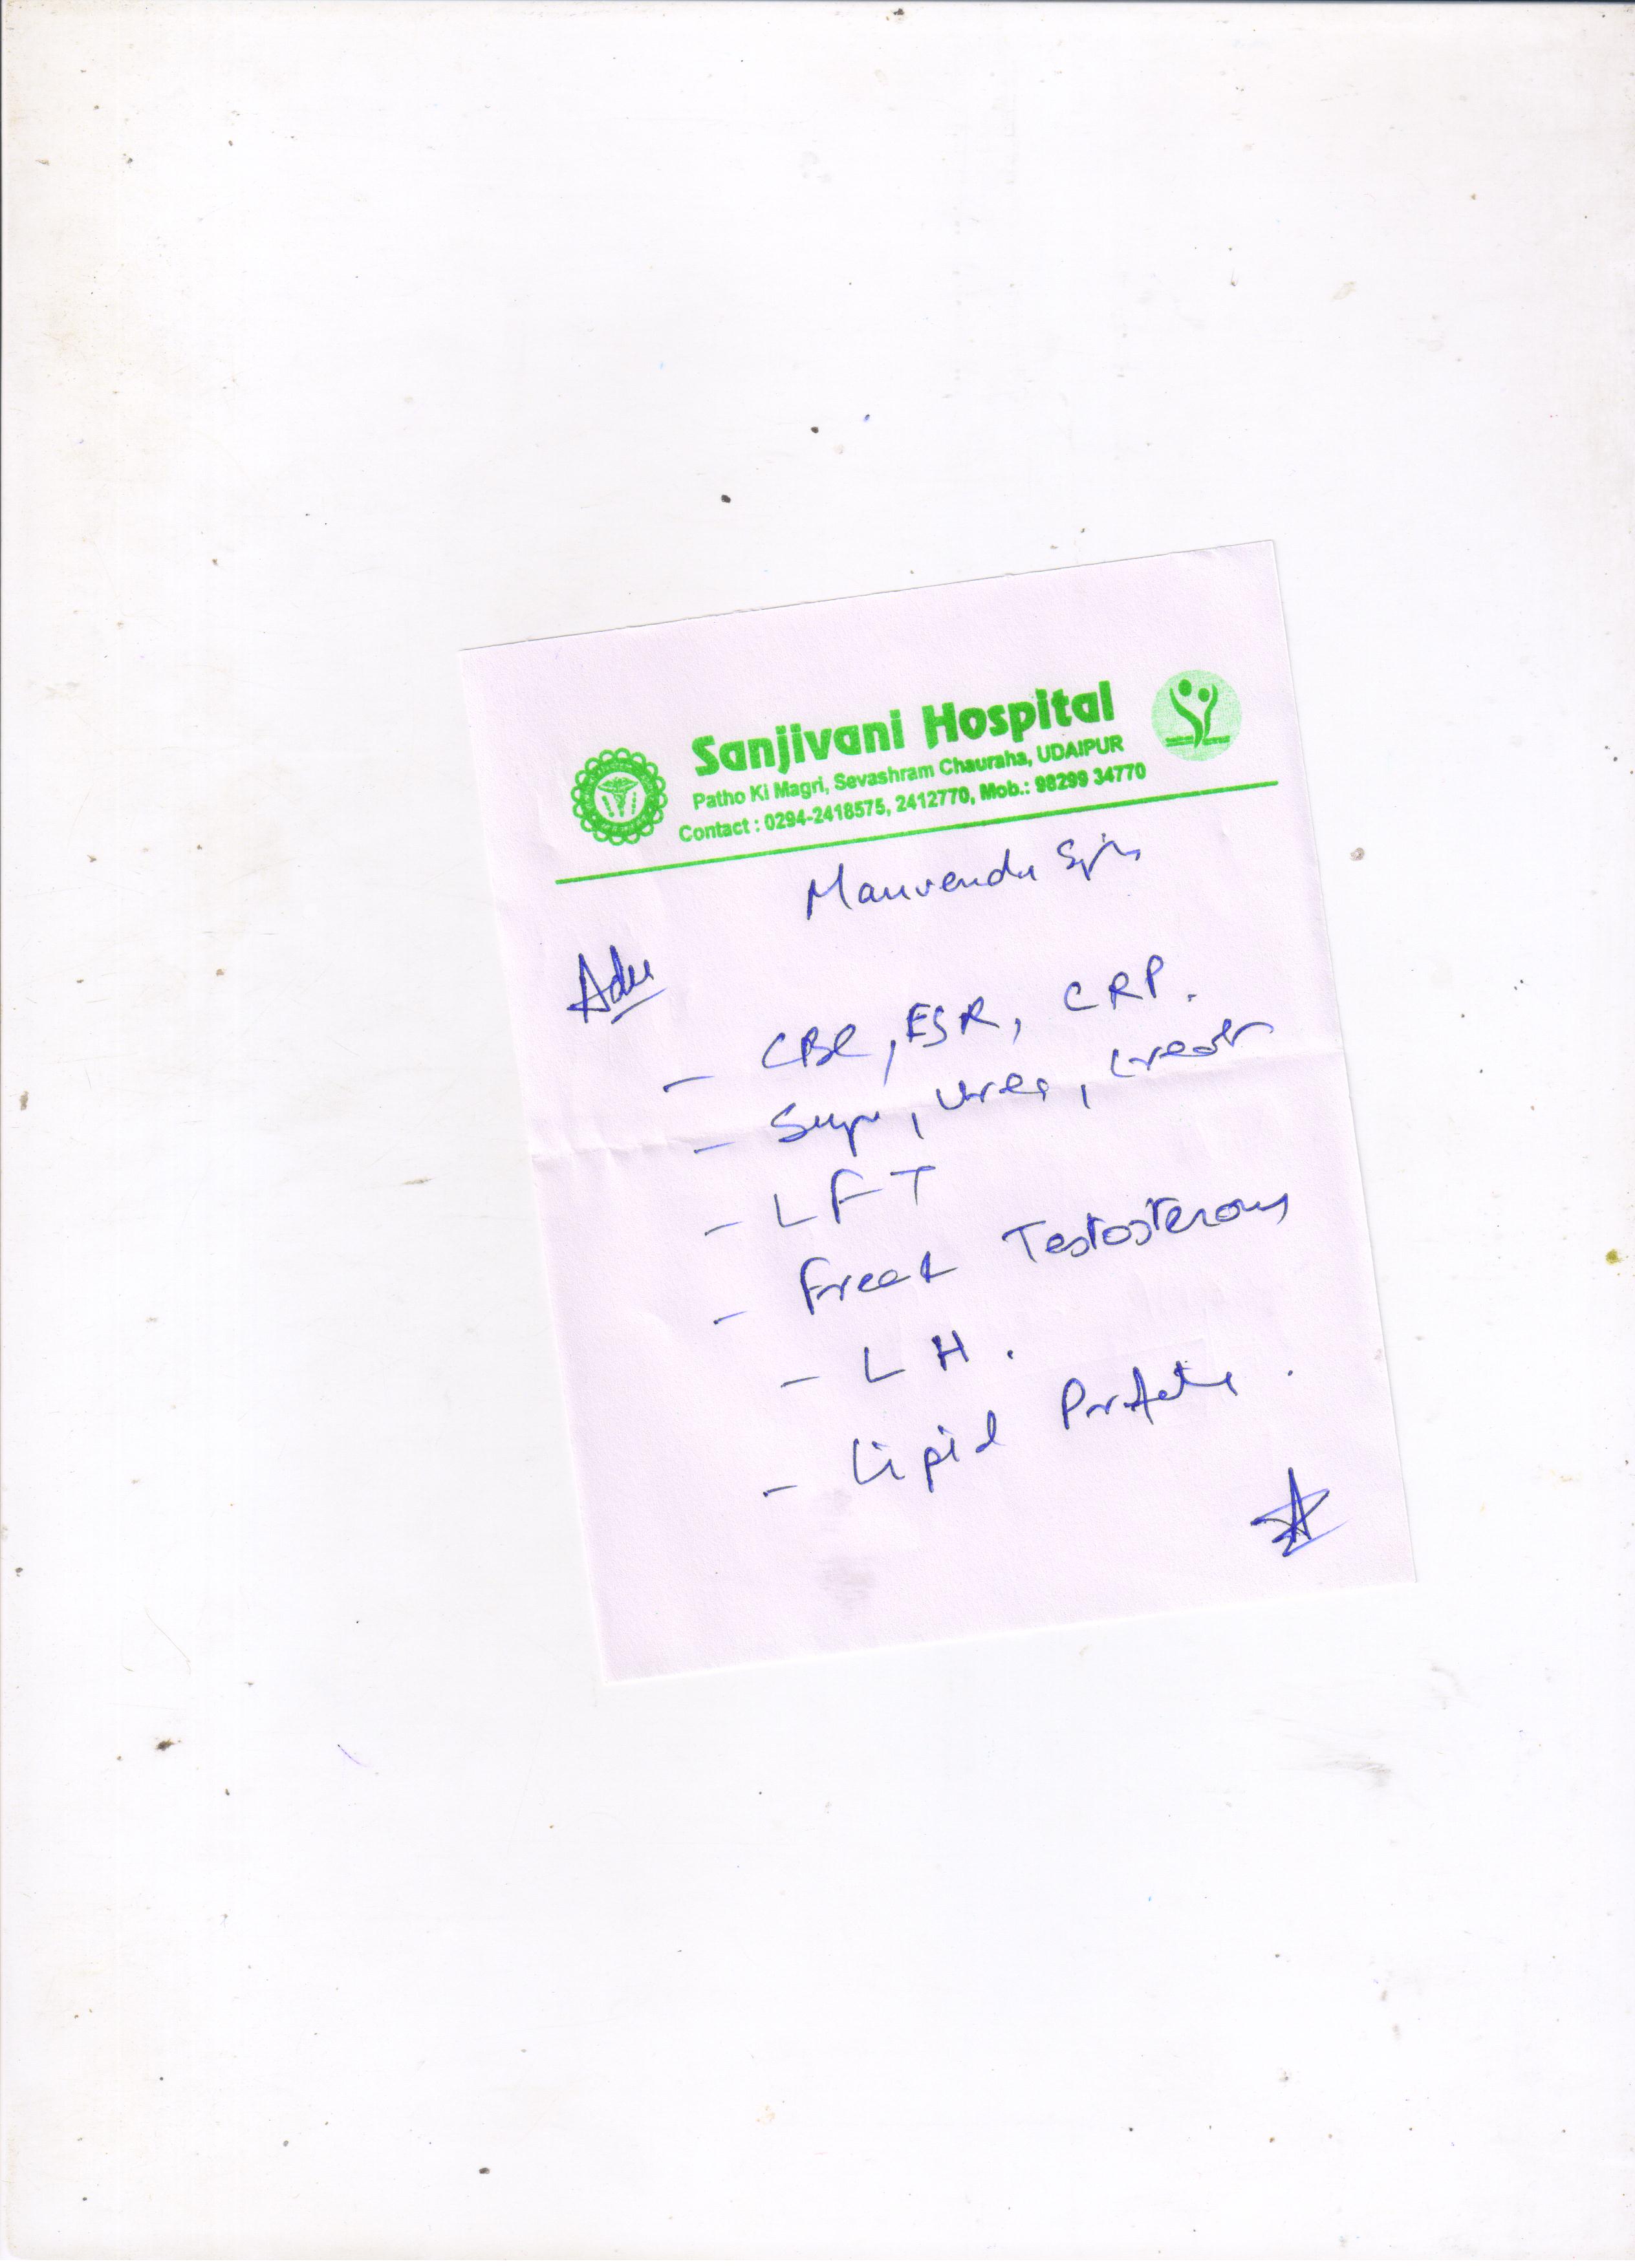 Sanjivani Hospital
Patho Ki Magri, Sevashram Chauraha, UDAIPUR
Contact : 0294-2418575, 2412770, Mob.: 98299 34770
Manvendra
Adv
- CBC, ESR, CRP.
- Sugar, Urea, Creat
- LFT
- Free Testosterone
- LH.
- Lipid Profile.